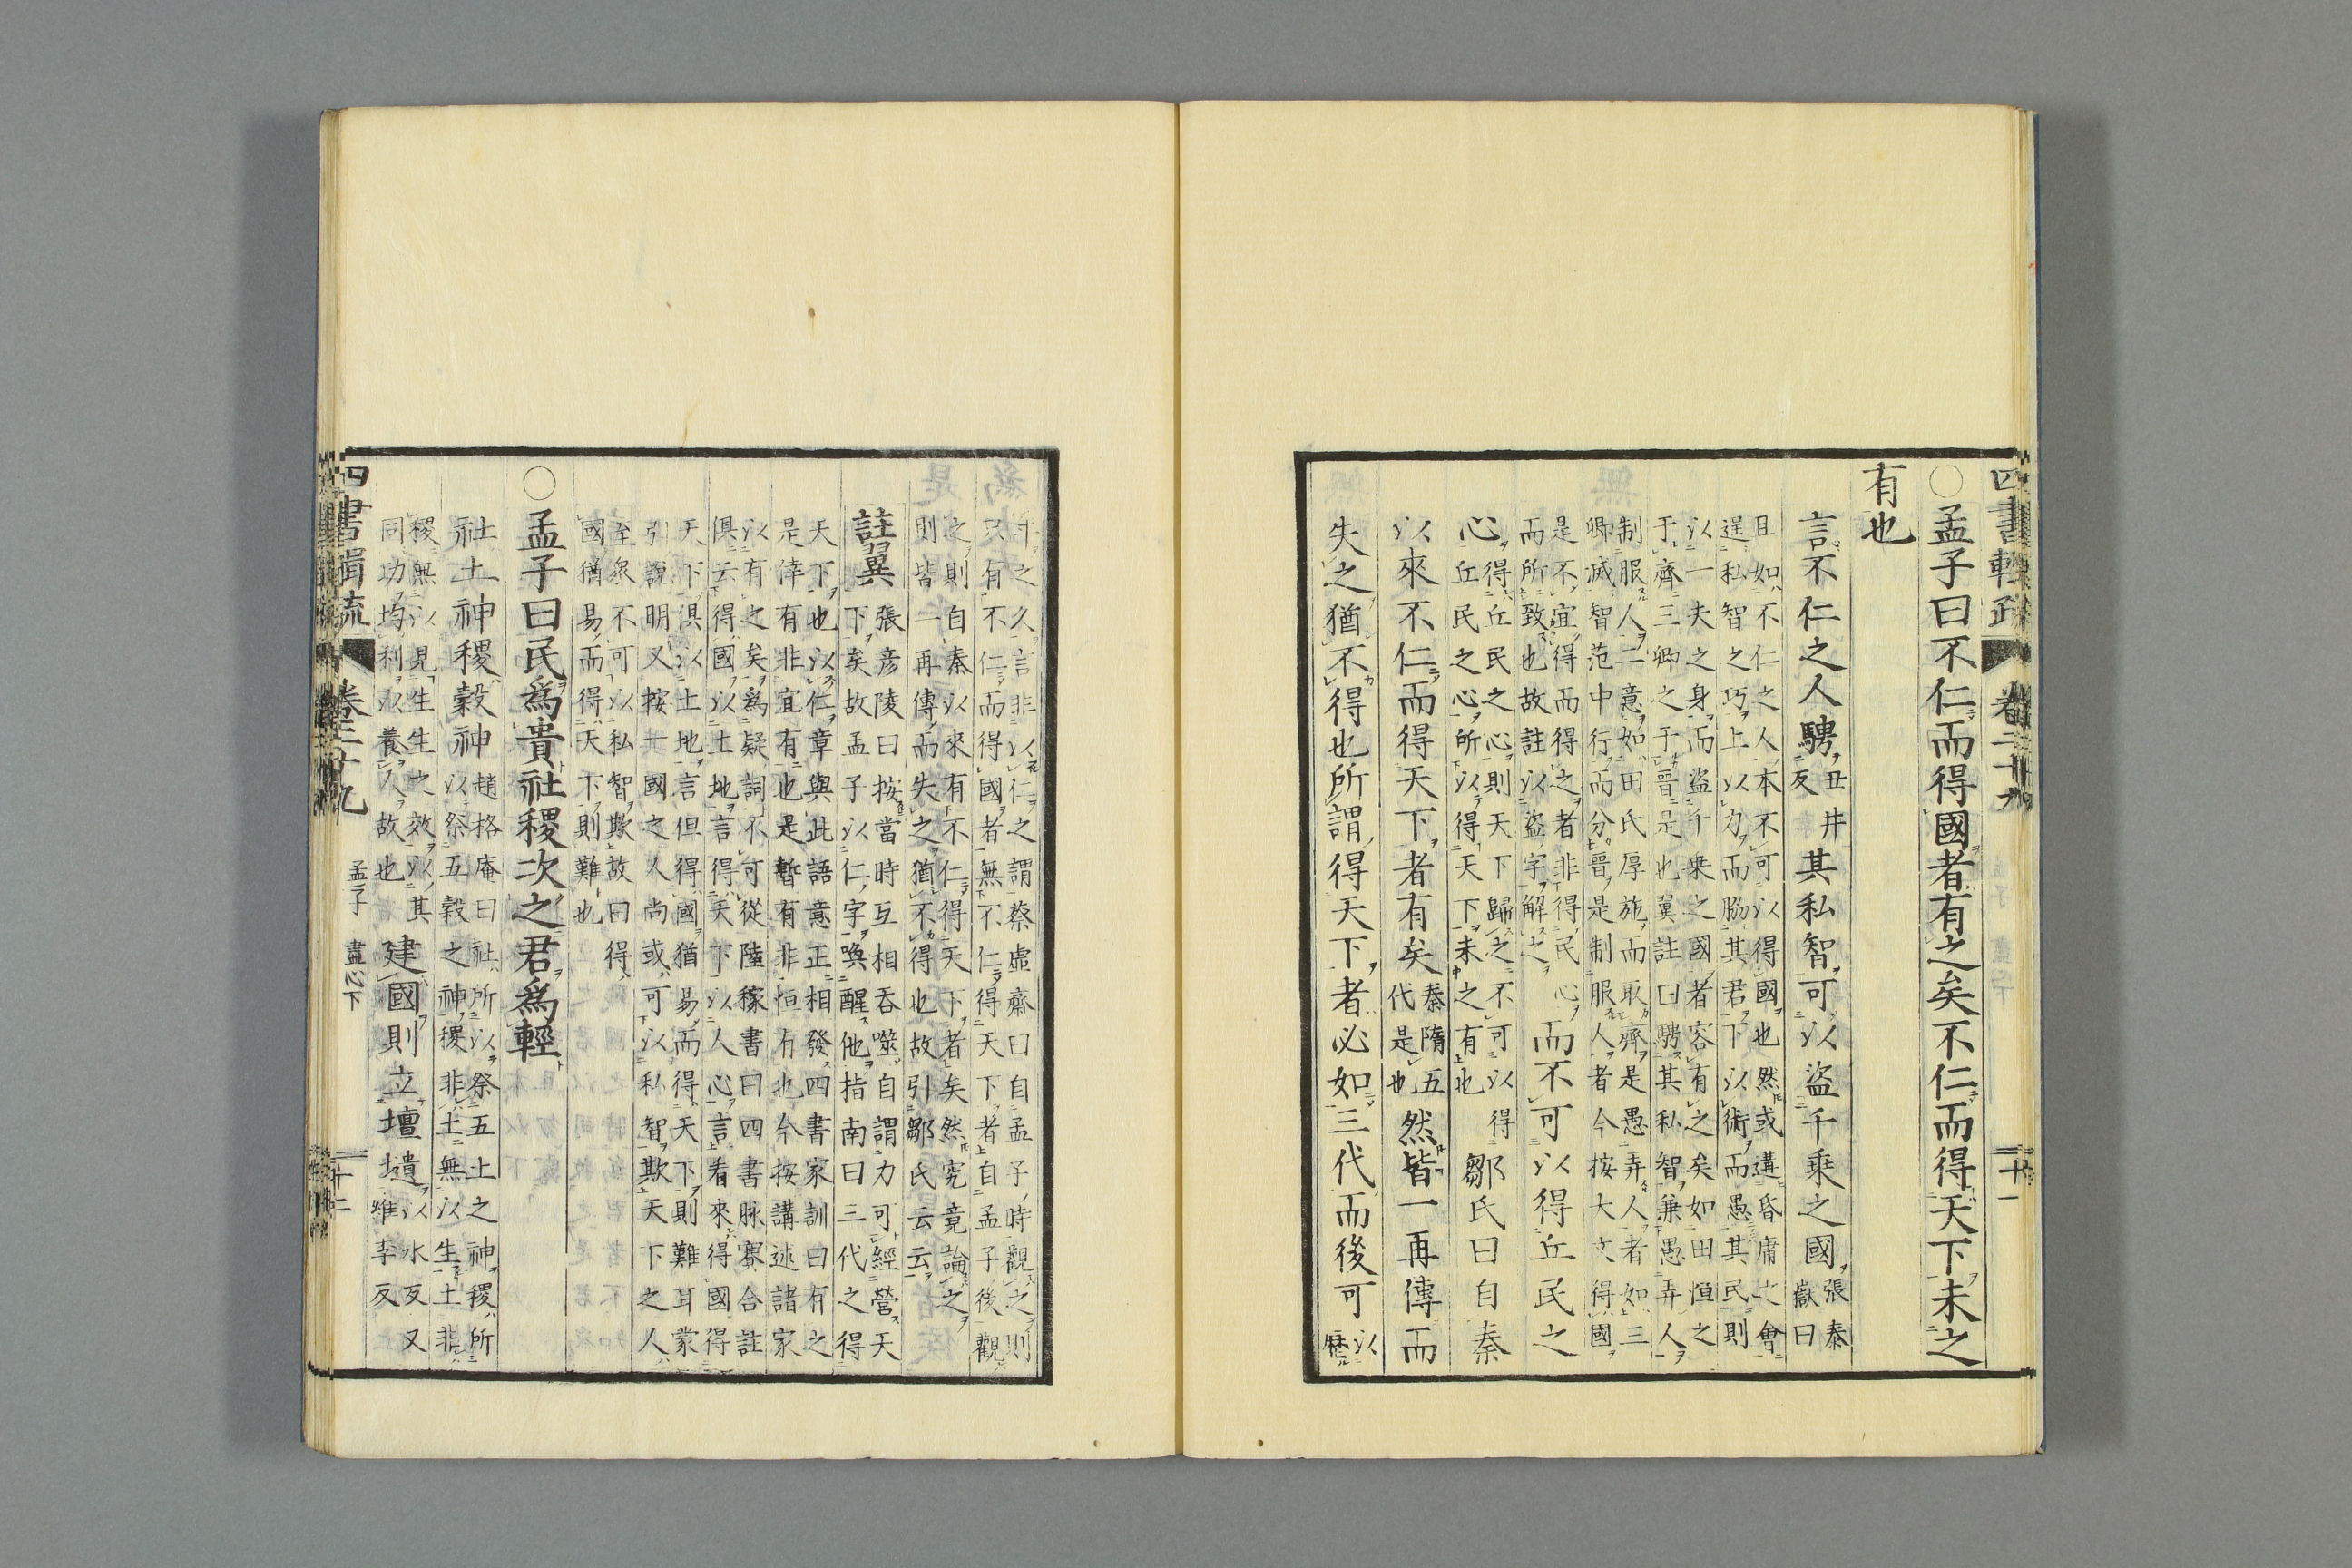 四書輯疏 卷二十九 十一
○孟子曰不仁而得國者有之矣不仁而得天下未之
有也
言不仁之人騁丑井反其私智可以盜千乘之國張泰嶽曰
且如不仁之人本不可以得國也然或遘昏庸之會
逞私智之巧上以力而脇其君下以術而愚其民則
以一夫之身而盜千乗之國者容有之矣如田恒之
于齊三卿之于晋是也翼註曰騁其私智兼愚弄人
制服人二意如田氏厚施而取齊是愚弄人者如三
卿滅智范中行而分晋是制服人者今按大文得國
是不宜得而得之者非得民心
而所致也故註以盜字解之
而不可以得丘民之
心得丘民之心則天下歸之不可以得
丘民之心所以得天下未之有也
鄒氏曰自秦
以來不仁而得天下者有矣秦隋五代是也然皆一再傳而
失之猶不得也所謂得天下者必如三代而後可以歴
年之久言非以仁之謂蔡虛齋曰自孟子時觀之則
只有不仁而得國者無不仁得天下者自孟子後觀
之則自秦以來有不仁得天下者矣然究竟論之
則皆一再傳而失之猶不得也故引鄒氏云云
註翼 張彦陵曰按當時互相吞噬自謂力可經營天
下矣故孟子以仁字喚醒他指南曰三代之得
天下也以仁章與此語意正相發四書家訓曰有之
是倖有非宜有也是暫有非恒有也今按講述諸家
以有之矣爲疑詞不可從陸稼書曰四書脉賽合註
俱云得國以土地言得天下以人心言看來得國得
天下俱以土地言但得國猶易而得天下則難耳蒙
引說明又按一國之人尚或可以私智欺天下之人
至衆不可以私智欺故曰得
國猶易而得天下則難也
○孟子曰民爲貴社稷次之君爲輕
社土神稷穀神趙格庵曰社所以祭五土之神稷所
以祭五穀之神稷非土無以生土非
稷無以見生生之效以其
同功均利以養人故也
建國則立壇壝以水反又
維季反
四書輯疏 卷二十九 孟子 盡心下 十二